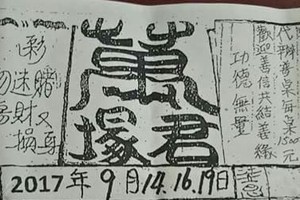 代辦善桌每桌1500元
歡迎善信共結善緣
功德無量
萬君塚
賭又身
彩迷財損
勿
2017年9月14.16.19日